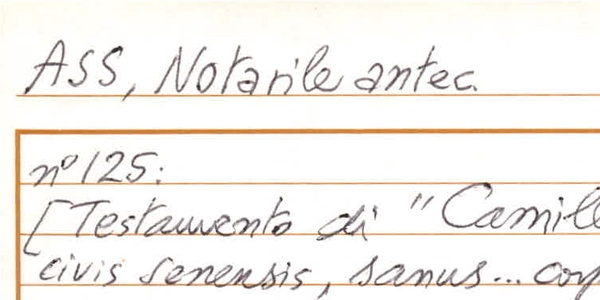 ASS, Notarile antec.
nº 125:
[Testamento di "Camill
civis senensis, sanus... cor